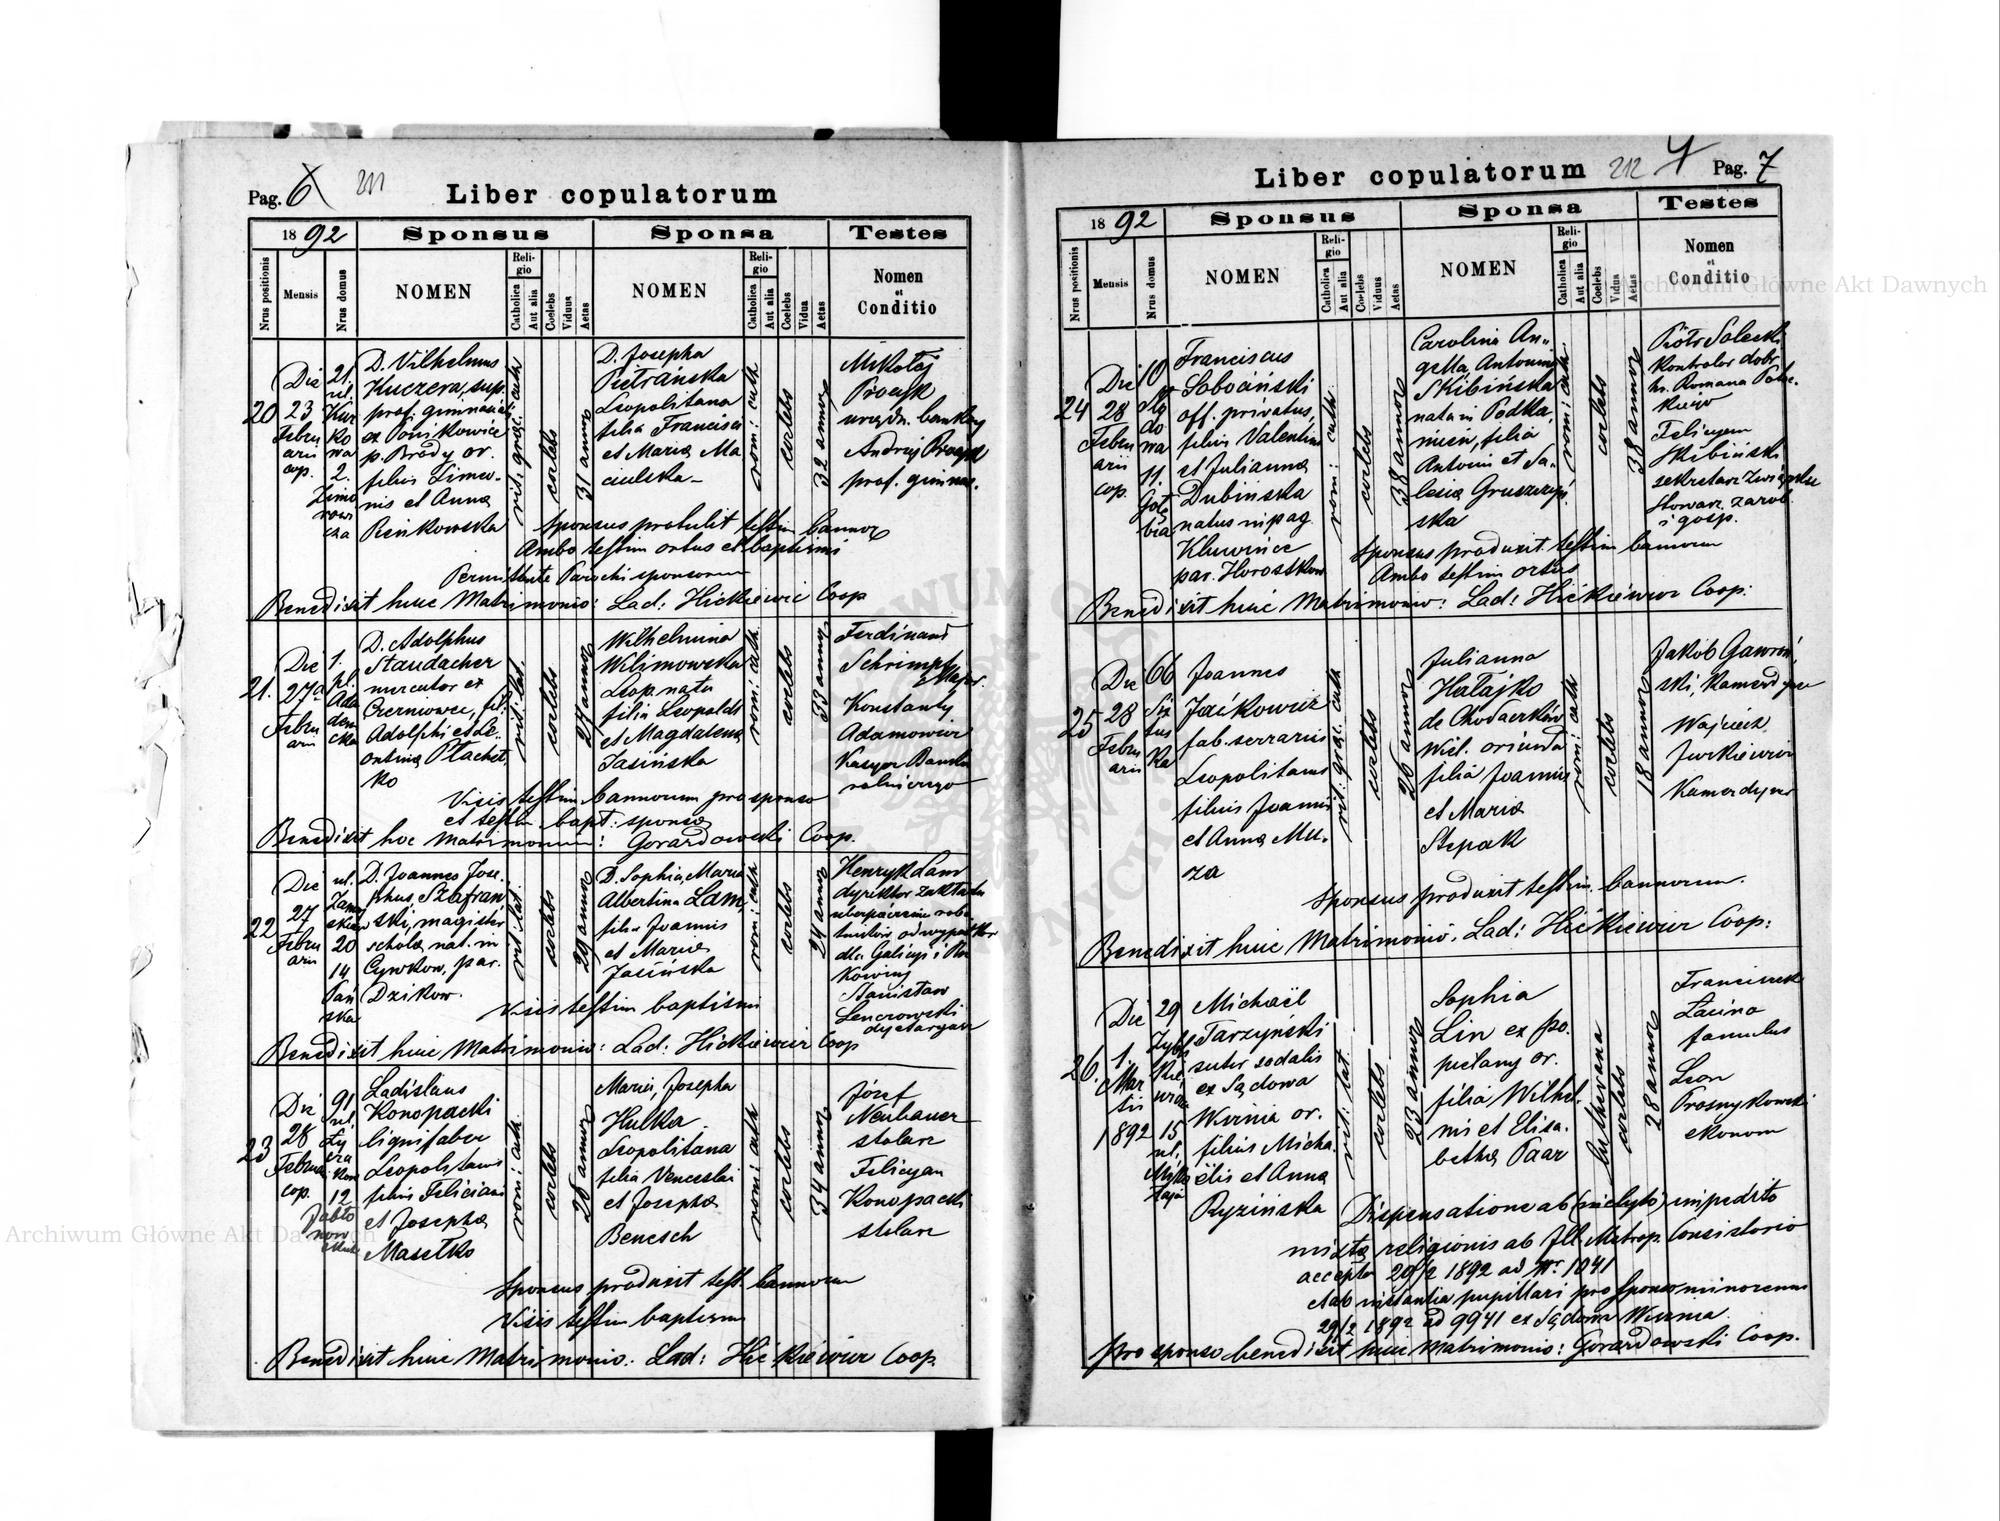 Pag. 6 211 Liber copulatorum
1892 Sponsus Sponsa Testes
Nrus positionis Mensis Nrus domus NOMEN Religio Catholica Aut alia Coelebs Viduus Aetas NOMEN Religio Catholica Aut alia Coelebs Vidua Aetas Nomen et Conditio
20
Die
23
Febru
arii
cop.
21.
ul.
Kur
ko
wa
2.
Zimo
rowi
cza
D. Vilhelmus
Kuczera, sup.
prof. gimnasial.
ex Ponikowice
p. Brody or.
filius Timeo-
nis et Anna
Pieńkowska
rit. graec. cath.
coelebs
31 annor
D. Josepha
Pietrańska
Leopolitana
filia Francisci
et Maria Ma
ciulska
rom: cath.
coelebs
32 annor
Mikołaj
Procyk
urzędn. bankowy
Andrzej Procyk
prof. gimnas.
Sponsus protulit testim bannor
Ambo testim ortus et baptismi
Permittente Parochi sponsorum
Benedixit huic Matrimonio: Lad: Hickiewicz Coop
21.
Die
27a
Febru
arii
1.
pl.
Aka
dem
cka
D. Adolphus
Staudacher
mercator ex
Czerniowce, fil.
Adolphi et Le-
ontina Ptachet
ko
rit. lat.
coelebs
27 annor
Wilhelmina
Wilimowska
Leop. nata
filia Leopoldi
et Magdalena
Jasińska
rom: cath.
coelebs
33 annor
Ferdinand
Schrimpf
Major.
Konstanty
Adamowicz
Kasyer Banku
rolniczego
Visis testim bannorum pro sponso
et testim. bapt: sponsa
Benedixit hoc Matrimonium: Gorazdowski Coop.
22
Die
27
Febru
arii
ul.
20
14
Pań
ska
D. Joannes Jose-
phus, Szafran
ski, magister
schola, nat. in
Cynkow, par.
Dzikow.
rit. lat.
coelebs
29 annor
D. Sophia, Maria
Albertina Lam,
filia Joannis
et Maria
Jasińska
rom: cath.
coelebs
24 annor
Henryk Lam
dyrektor zakładu
ubezpieczenia robo
tników od wypadków
dla Galicyi i Bu
kowiny
Stanisław
Lenczowski
dyetaryusz
Visis testim baptismi
Benedixit huic Matrimonio: Lad: Hickiewicz Coop
23
Die
28
Februa
cop.
91
ul.
Ły
cza
kow
12
Jabło
now
skich
Ladislaus
Konopacki
lignifaber
Leopolitanus
filius Feliciani
et Josepha
Masełko
rom: cath.
coelebs
28 annor
Maria, Josepha
Hulka
Leopolitana
filia Venceslai
et Josepha
Benesch
rom: cath
coelebs
34 annor
Józef
Neubauer
stolarz
Felicyan
Konopacki
stolarz
Sponsus produxit test. bannorum
Visis testim baptismi
Benedixit huic Matrimonio: Lad: Hickiewicz Coop.
Liber copulatorum 212 7 Pag. 7
1892 Sponsus Sponsa Testes
Nrus positionis Mensis Nrus domus NOMEN Religio Catholica Aut alia Coelebs Viduus Aetas NOMEN Religio Catholica Aut alia Coelebs Vidua Aetas Nomen et Conditio
24
Die
28
Febru
arii
cop.
10
do
wa
11.
Gołę
bia
Franciscus
Sobociński
off. privatus,
filius Valentini
et Julianna
Dubińska
natus in pag.
Kluwińce
par. Horostkow
rom: cath.
coelebs
38 annor
Carolina An-
gella Antonina
Skibińska
nata in Podka
mień, filia
Antonii et Sa-
lesia Gruszczyń
ska
rom: cath.
coelebs
38 annor
Piotr Solecki
kontrolor dóbr
hr. Romana Poto-
kiego
Felicyan
Skibiński
sekretarz Związku
stowarz. zarob.
i gosp.
Sponsus produxit testim bannorum
Ambo testim ortus
Benedixit huic Matrimonio: Lad: Hickiewicz Coop.
25
Die
28
Febru
arii
66
Six
tus
ka
Joannes
Jaćkowicz
fab. serrarius
Leopolitanus
filius Joannis
et Anna Mu-
za
rit: graec. cath
coelebs
26 annor
Julianna
Hałajko
de Chodaczków
Wiel. oriunda
filia Joannis
et Maria
Stepak
rom: cath
coelebs
18 annor
Jakób Gawroń
ski, kamerdyner
Wojciech
Jurkiewicz
Kamerdyner
Sponsus produxit testim. bannorum.
Benedixit huic Matrimonio. Lad: Hickiewicz Coop:
26.
Die
1.
Mar
tii
1892
29
Zybli
kie
wicza
15
ul.
Miko
łaja
Michaël
Tarzyński
sutor sodalis
ex Sądowa
Wisznia or.
filius Micha-
ëlis et Anna
Ryzińska
rit: lat.
coelebs
23 annor
Sophia
Lin ex po.
pielany or.
filia Wilhel-
mi et Elisa-
betha Paar
lutherana
coelebs
28 annor
Franciszek
Łacina
famulus
Leon
Prosnykowski
ekonom
Dispensatione ab impedito
mixta religionis ab Ill. Metrop. Consistorio
accepta 20/2 1892 ad Nr. 1041
et ab instantia pupillari pro sponso minorenni
29/2 1892 ad 9941 ex Sądowa Wisznia
pro sponso benedixit huic Matrimonio: Gorazdowski Coop.
Archiwum Główne Akt Dawnych
Archiwum Główne Akt Dawnych